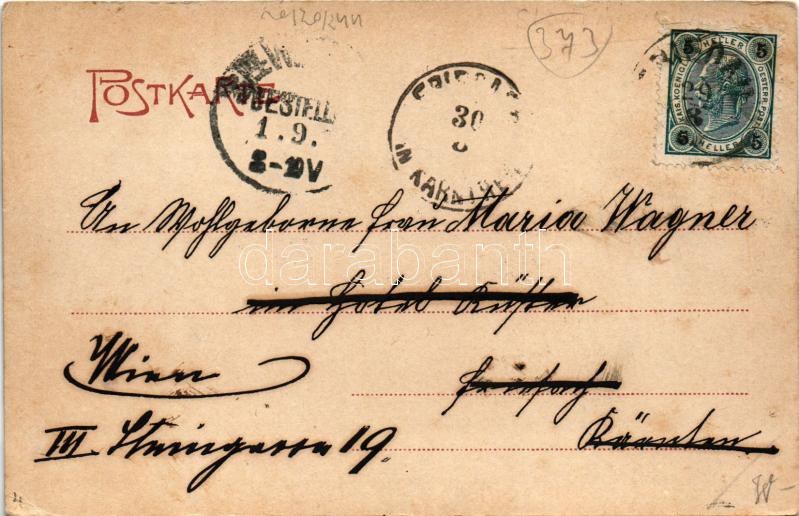 373
POSTKARTE
BESTELL
1.9.
8-10V
30
IN KÄRNTEN
5 HELLER 5
KAIS. KOENIGL.
OESTERR. POST
5 HELLER 5
29
8
An Wohlgeborne Frau Maria Wagner
darabanth
im Hotel
Friesach
Wien
Kärnten
III. Steingasse 19.